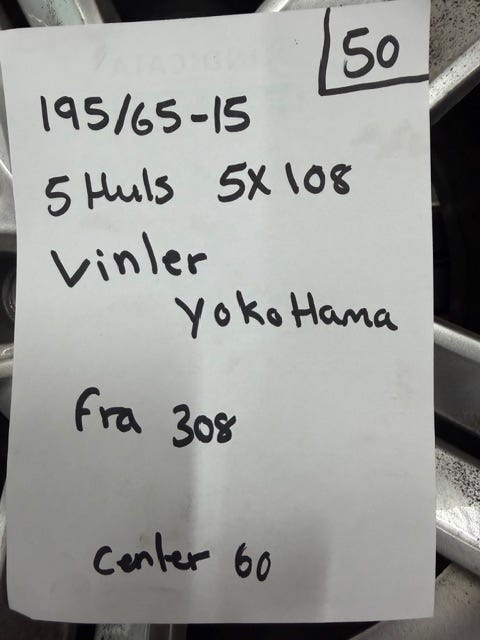 50
195/65-15
5 Huls 5X108
Vinler
YokoHama
Fra 308
center 60